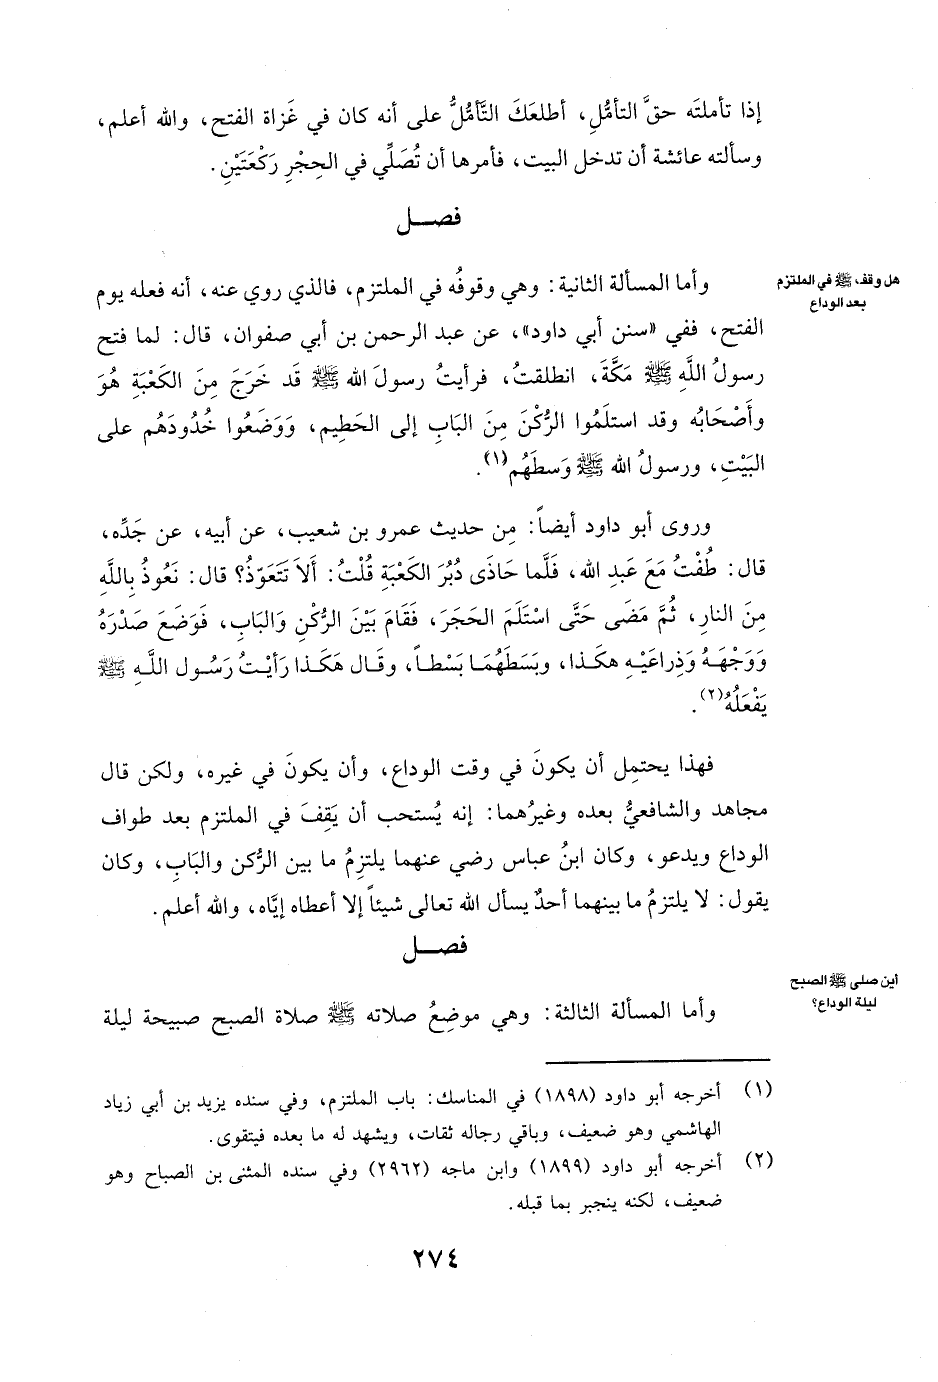 إذا تأملتَه حقَّ التأمُّلِ، أطلعَكَ التَّأمُّلُ على أنه كان في غَزاة الفتح، والله أعلم،
وسألته عائشة أن تدخل البيت، فأمرها أن تُصَلِّي في الحِجْرِ رَكْعَتَيْنِ.
فصـــل
هل وقف ﷺ في الملتزم
بعد الوداع
وأما المسألة الثانية: وهي وقوفُه في الملتزم، فالذي روي عنه، أنه فعله يوم
الفتح، ففي «سنن أبي داود»، عن عبد الرحمن بن أبي صفوان، قال: لما فتح
رسولُ اللَّهِ ﷺ مَكَّةَ، انطلقتُ، فرأيتُ رسولَ الله ﷺ قَد خَرَجَ مِنَ الكَعْبَةِ هُوَ
وأَصْحَابُه وقد استلَمُوا الرُّكْنَ مِنَ البَابِ إلى الحَطِيم، وَوَضَعُوا خُدُودَهُم على
البَيْتِ، ورسولُ الله ﷺ وَسطَهُم(١).
وروى أبو داود أيضاً: مِن حديث عمرو بن شعيب، عن أبيه، عن جَدِّه،
قال: طُفْتُ مَعَ عَبدِ الله، فَلَّما حَاذَى دُبُرَ الكَعْبَةِ قُلْتُ: أَلاَ تَتَعَوّذُ؟ قال: نَعُوذُ بِاللَّهِ
مِنَ النارِ، ثُمَّ مَضَى حَتَّى اسْتَلَمَ الحَجَرَ، فَقَامَ بَيْنَ الرُّكْنِ وَالبَابِ، فَوَضَعَ صَدْرَهُ
وَوَجْهَـهُ وَذِراعَيْـهِ هكـذا، وبسَطَهُمَـا بَسْطـاً، وقَـال هَكَـذا رَأيْـتُ رَسُـول اللَّـهِ ﷺ
يَفْعَلُهُ(٢).
فهذا يحتمِل أن يكونَ في وقت الوداع، وأن يكونَ في غيره، ولكن قال
مجاهد والشافعيُّ بعده وغيرُهما: إنه يُستحب أن يَقِفَ في الملتزم بعد طواف
الوداع ويدعو، وكان ابنُ عباس رضي عنهما يلتزِمُ ما بين الرُّكن والبَابِ، وكان
يقول: لا يلتزمُ ما بينهما أحدٌ يسأل الله تعالى شيئاً إلا أعطاه إيَّاه، والله أعلم.
فصـــل
أين صلى ﷺ الصبح
ليلة الوداع؟
وأما المسألة الثالثة: وهي موضِعُ صلاته ﷺ صلاة الصبح صبيحة ليلة
(١) أخرجه أبو داود (١٨٩٨) في المناسك: باب الملتزم، وفي سنده يزيد بن أبي زياد
الهاشمي وهو ضعيف، وباقي رجاله ثقات، ويشهد له ما بعده فيتقوى.
(٢) أخرجه أبو داود (١٨٩٩) وابن ماجه (٢٩٦٢) وفي سنده المثنى بن الصباح وهو
ضعيف، لكنه ينجبر بما قبله.
٢٧٤